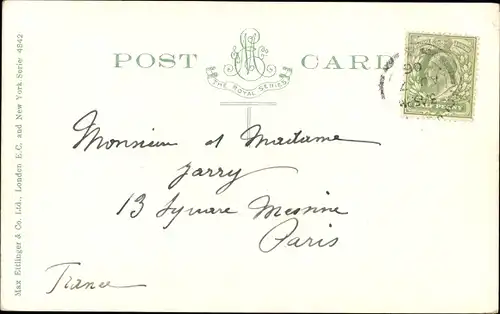 POST CARD
THE ROYAL SERIES
Monsieur et Madame
Jarry
13 Square Messine
Paris
France
Max Ettlinger & Co. Ltd., London E.C. and New York Series 4842